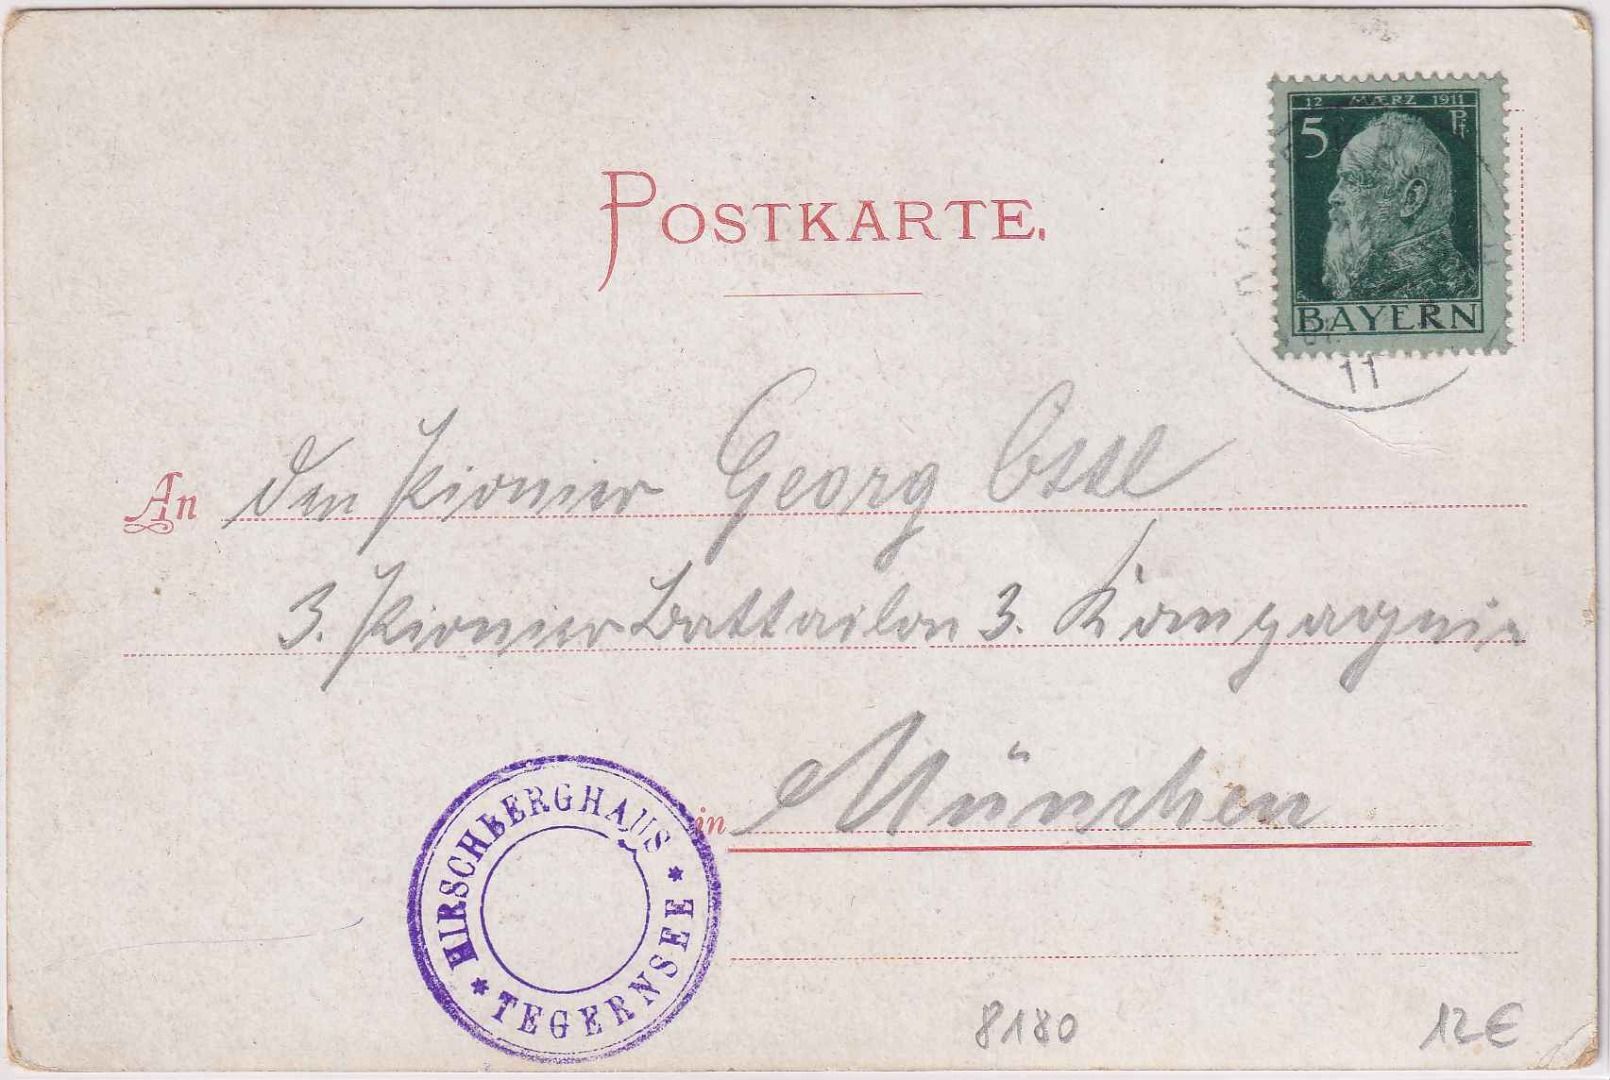 12 MÆRZ 1911
5 Pf
BAYERN
11
POSTKARTE.
An den Pionier Georg Ostl
3. Pionier Battailon 3. Kompagnie
in München
HIRSCHBERGHAUS
* TEGERNSEE *
8180
12€